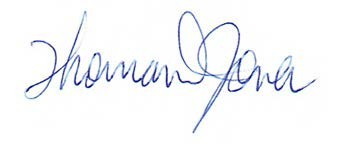 Thomas Jones